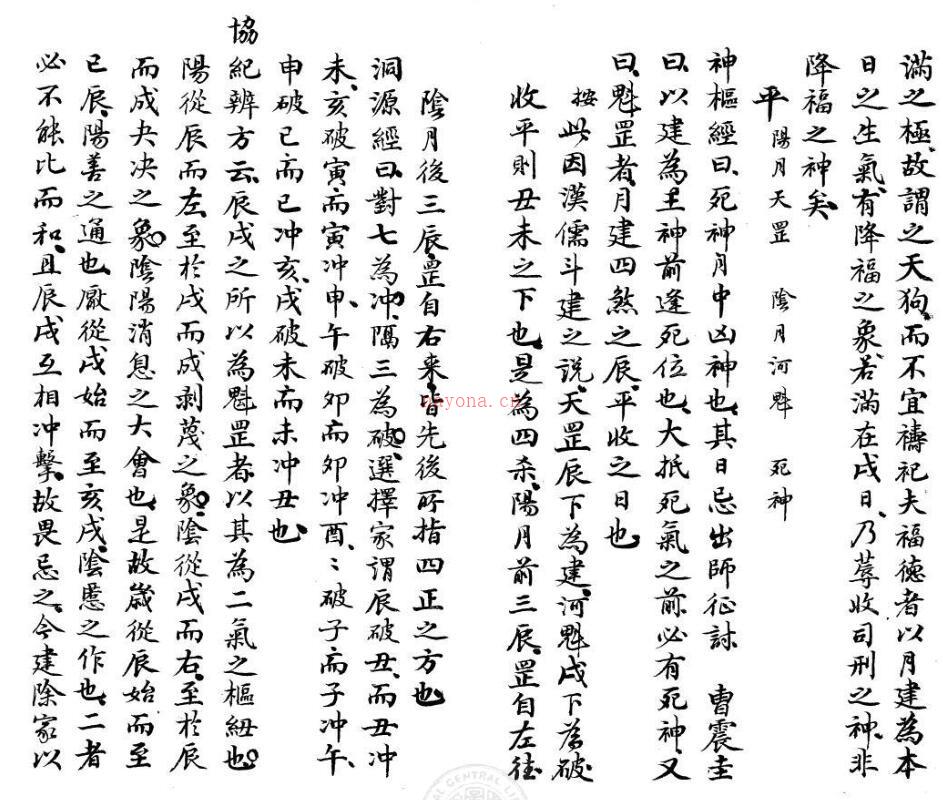 滿之極故謂之天狗、而不宜禱祀夫福德者以月建為本
日之生氣、有降福之象、若滿在戌日、乃蓐收司刑之神、非
降福之神矣、
平 陽月天罡 陰月河魁 死神
神樞經曰、死神月中凶神也、其日忌出師征討 曹震圭
曰、以建為主神前逢死位也、大抵死氣之前必有死神、又
曰、魁罡者、月建四煞之辰、平收之日也、
按 此因漢儒斗建之說、天罡辰下為建、河魁戌下為破
收平則丑未之下也、是為四杀、陽月前三辰、罡自左徃
陰月後三辰、罡自右來、皆先後所指四正之方也
洞源經曰、對七為冲、隔三為破、選擇家謂辰破丑、而丑冲
未、亥破寅、而寅冲申、午破卯而卯冲酉、〻破子而子冲午、
申破巳而巳冲亥、戌破未而未冲丑也、
協紀辨方云、辰戌之所以為魁罡者、以其為二氣之樞紐也
陽從辰而左、至於戌而成剥蔑之象、陰從戌而右、至於辰
而成夬决之象、陰陽消息之大會也、是故歲從辰始而至
巳辰、陽善之通也、厭從戌始而至亥戌、陰慝之作也、二者
必不能比而和、且辰戌互相冲擊、故畏忌之、今建除家以
nayona.cn
CENTRAL